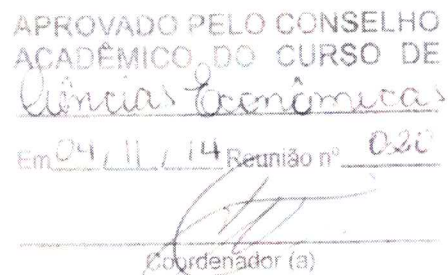 APROVADO PELO CONSELHO
ACADÊMICO DO CURSO DE
Ciências Econômicas
Em 04 / 11 / 14 Reunião nº 020
Coordenador (a)